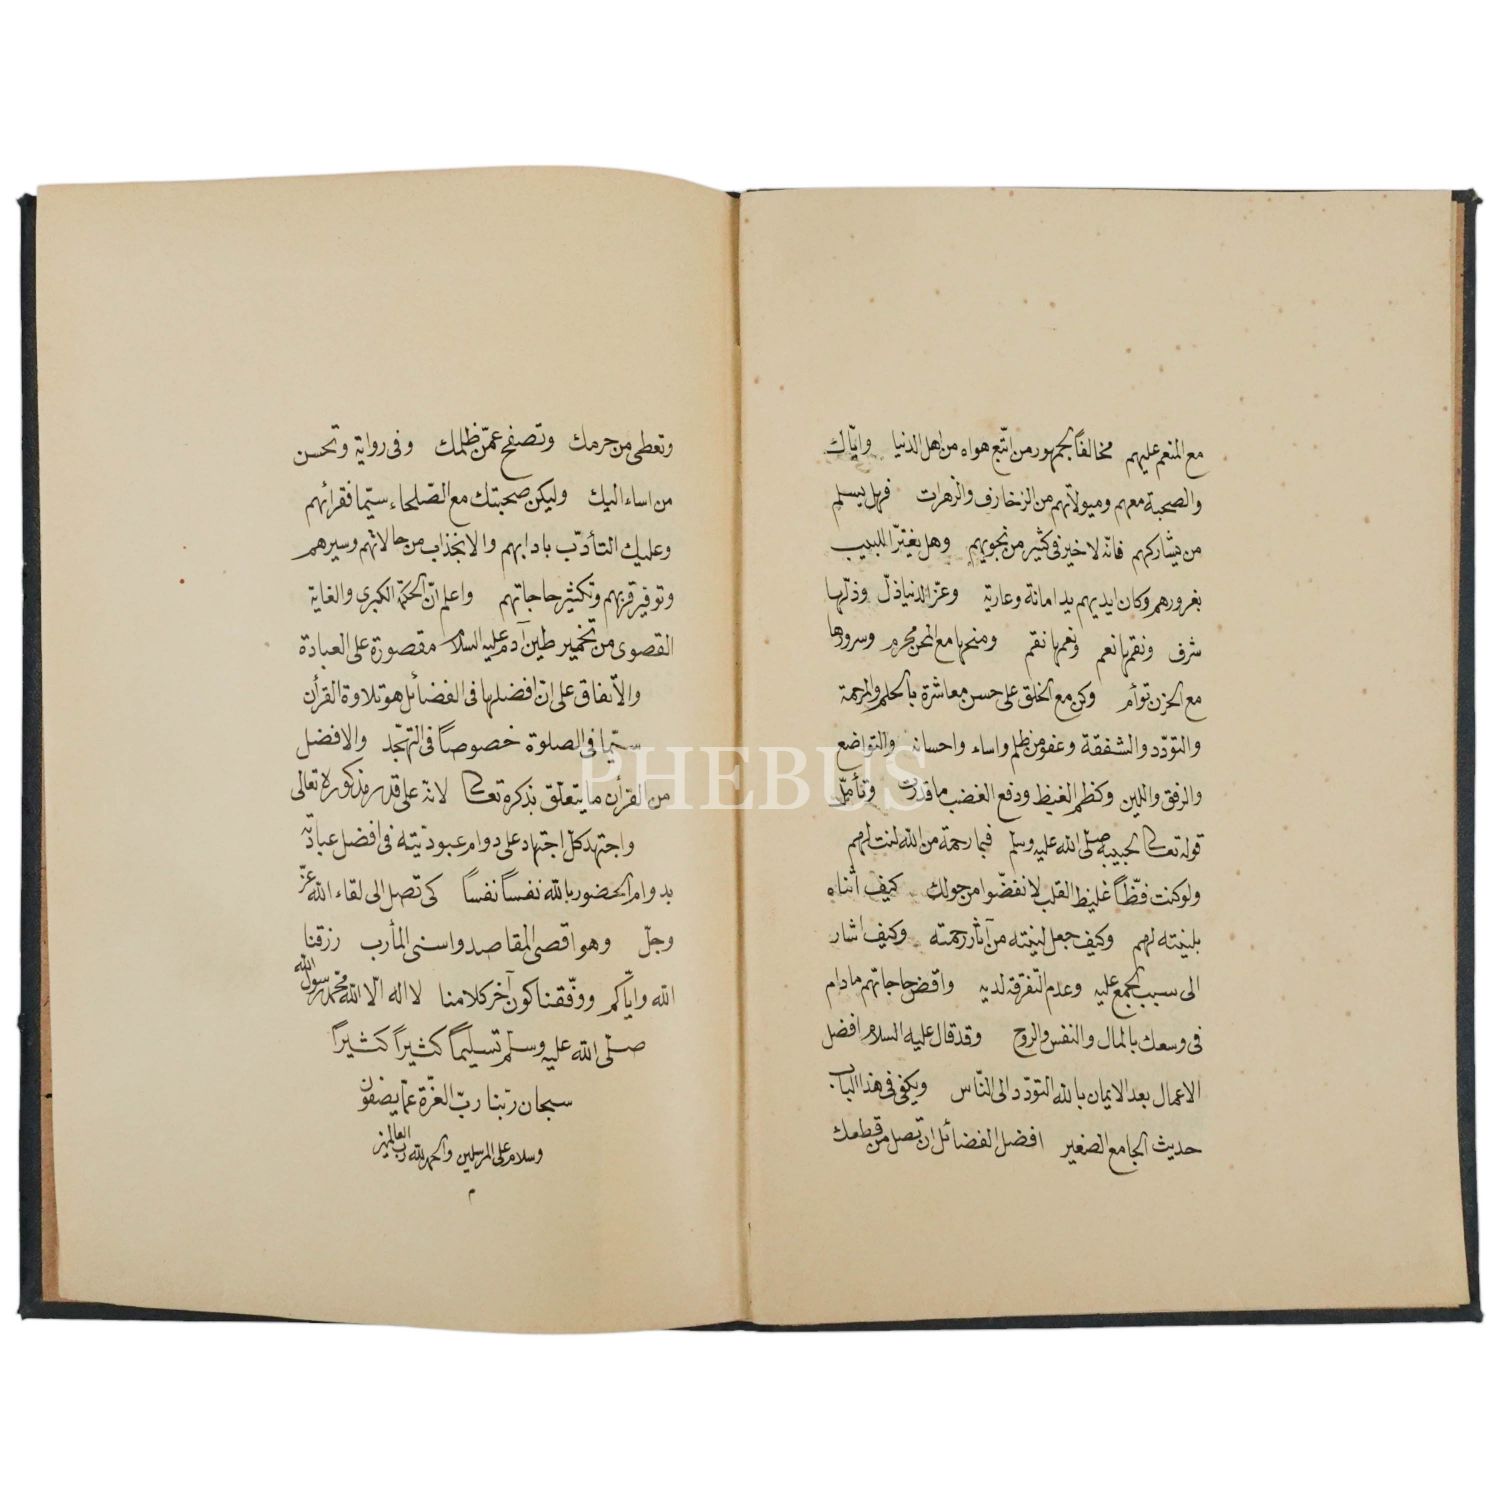 مع المنعم عليهم مخالفاً لجمهور من اتّبع هواه من اهل الدنيا وايّاك
والصحبة معهم وميولاتهم من الزخارف والزهرات فهل يسلم
من يشاركهم فانّه لا خير فى كثير من نجويهم وهل يغترّ اللبيب
بغرورهم وكان ايديهم يد امانة وعارية وعزّ الدنيا ذلّ وذلّها
شرف ونقمها نعم ونعمها نقم ومنحها مع المحن محرم وسرورها
مع الحزن توأم وكن مع الخلق على حسن معاشرة بالحلم والمرحمة
والتودّد والشفقة وعفو من ظلم واساء واحسانه والتواضع
والرفق واللين وكظم الغيظ ودفع الغضب ما قدرت وتأمّل
قوله تعالى لحبيبه صلى الله عليه وسلم فبما رحمة من الله لنت لهم
ولو كنت فظّاً غليظ القلب لانفضّوا من حولك كيف اثناه
بلينته لهم وكيف جعل لينته من آثار رحمته وكيف اشار
الى سبب الجمع عليه وعدم التفرقة لديه واقض حاجاتهم مادام
فى وسعك بالمال والنفس والروح وقد قال عليه السلام افضل
الاعمال بعد الايمان بالله التودّد الى النّاس ويكفى فى هذا الباب
حديث الجامع الصغير افضل الفضائل ان تصل من قطعك
وتعطى من حرمك وتصفح عمّن ظلمك وفى رواية وتحسن
من اساء اليك وليكن صحبتك مع الصّلحاء سيّما فقرائهم
وعليك التأدّب بادابهم والانجذاب من حالاتهم وسيرهم
وتوفير قربهم وتكثير حاجاتهم واعلم انّ الحكمة الكبرى والغاية
القصوى من تخمير طين آدم عليه السلام مقصورة على العبادة
والاتّفاق على ان افضلها فى الفضائل هو تلاوة القرأن
سيّما فى الصلوة خصوصاً فى التهجّد والافضل
من القرأن ما يتعلّق بذكره تعالى لانه على قدر مذكوره تعالى
واجتهد كلّ اجتهاد على دوام عبوديته فى افضل عباداته
بدوام الحضور بالله نفساً نفساً كى تصل الى لقاء الله عزّ
وجلّ وهو اقصى المقاصد واسنى المأرب رزقنا
الله وايّاكم ووفّقنا كون آخر كلامنا لا اله الّا الله محمّد رسول الله
صلّى الله عليه وسلّم تسليماً كثيراً كثيراً
سبحان ربّنا ربّ العزّة عمّا يصفون
وسلام على المرسلين والحمد لله ربّ العالمين
م
PHEBUS